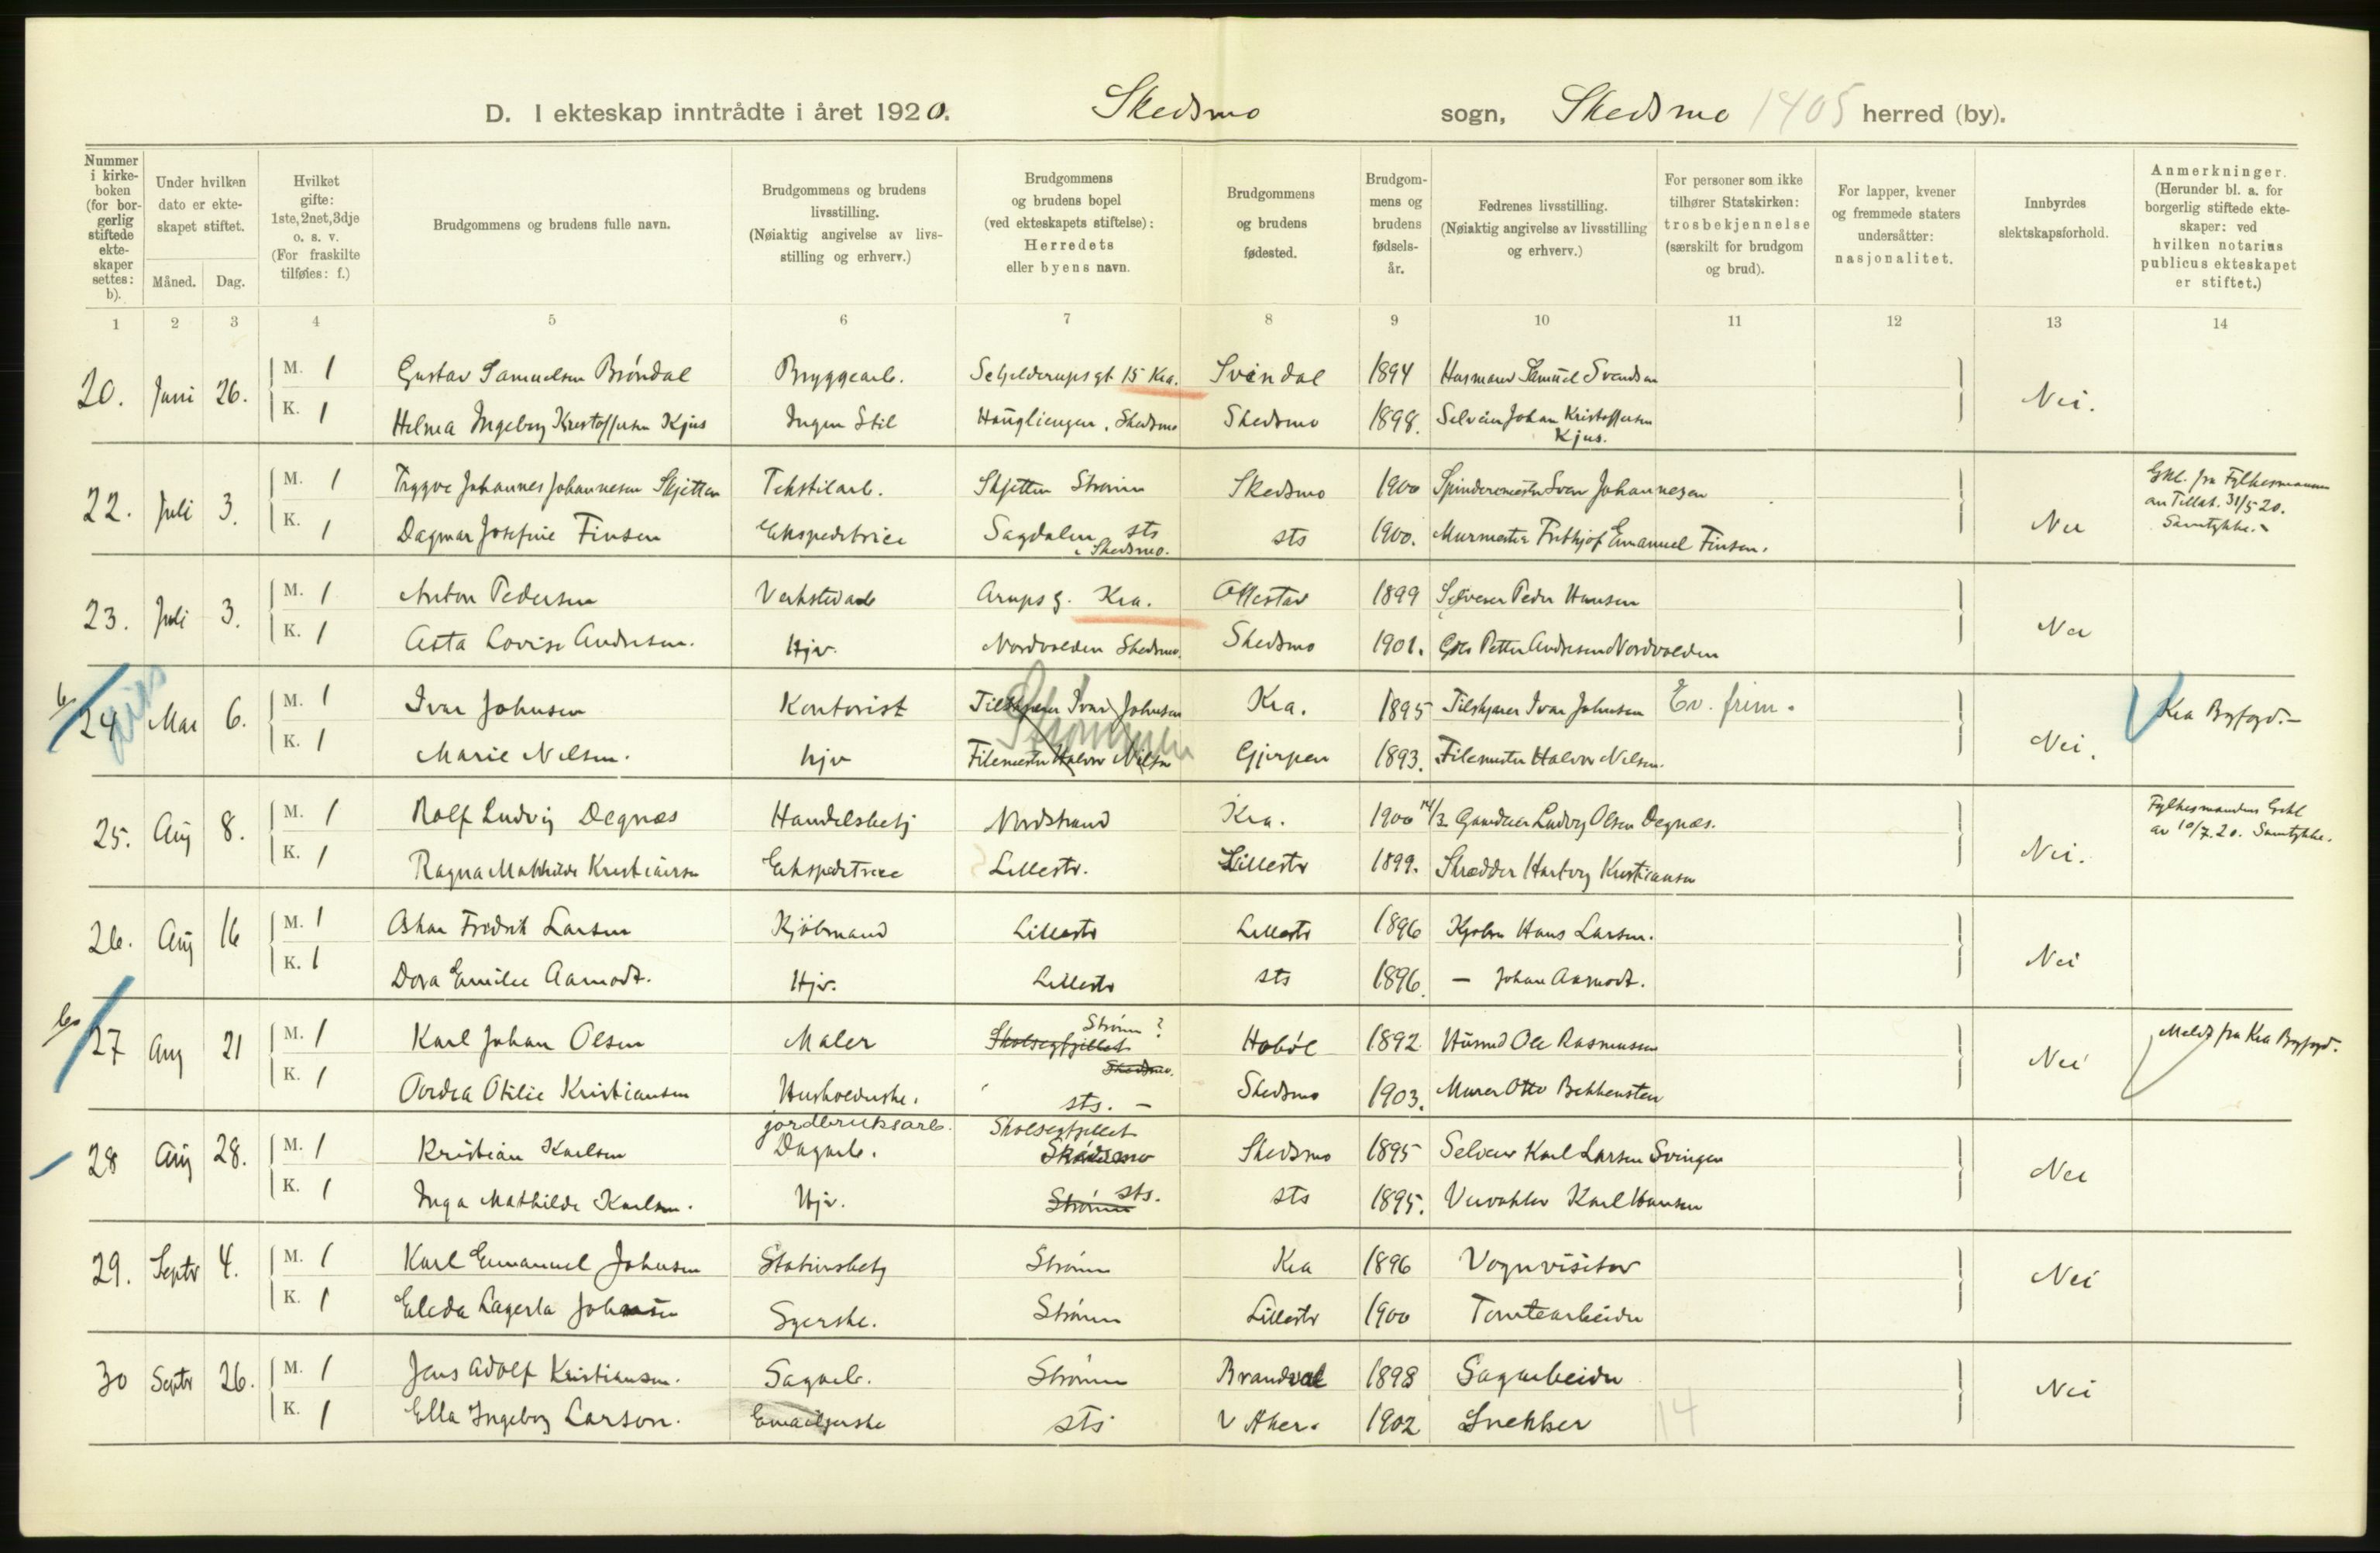 D. I ekteskap inntrådte i året 1920. Skedsmo sogn, Skedsmo 1405 herred (by).
Nummer i kirke-boken (for bor-gerlig stiftede ekte-skaper settes: b).
Under hvilken dato er ekte-skapet stiftet.
Måned. Dag.
Hvilket gifte: 1ste, 2net, 3dje o. s. v. (For fraskilte tilføies: f.)
Brudgommens og brudens fulle navn.
Brudgommens og brudens livsstilling. (Nøiaktig angivelse av livs-stilling og erhverv.)
Brudgommens og brudens bopel (ved ekteskapets stiftelse): Herredets eller byens navn.
Brudgommens og brudens fødested.
Brudgom-mens og brudens fødsels-år.
Fedrenes livsstilling. (Nøiaktig angivelse av livsstilling og erhverv.)
For personer som ikke tilhører Statskirken: trosbekjennelse (særskilt for brudgom og brud).
For lapper, kvener og fremmede staters undersåtter: nasjonalitet.
Innbyrdes slektskapsforhold.
Anmerkninger. (Herunder bl. a. for borgerlig stiftede ekte-skaper: ved hvilken notarius publicus ekteskapet er stiftet.)
1 2 3 4 5 6 7 8 9 10 11 12 13 14
20. Juni 26. M. 1 Gustav Samuelsen Bröndal Bryggearb. Schjelderupsgt 15 Kra. Svindal 1894 Husmand Samuel Svendsen Nei.
K. 1 Helma Ingeborg Kristoffersen Kjus Ingen Stil Haugliengen, Skedsmo Skedsmo 1898. Selveier Johan Kristoffersen
Kjus.
22. Juli 3. M. 1 Trygve Johannes Johannesen Skjetten Tekstilarb. Skjetten Strømm Skedsmo 1900 Spinderimester Sven Johannesen Nei Gkl. fra Fylkesmannen
av Tillat. 31/5 20.
Samtykke.
K. 1 Dagmar Josefine Finsen Ekspeditrice Sagdalen sts 1900. Murmester Frithjof Emanuel Finsen.
sts
i Skedsmo.
23. Juli 3. M. 1 Anton Pedersen Verkstedarb Arups g. Kra. Ottestad 1899 Selveier Peder Hansen Nei
K. 1 Asta Lovise Andresen. Hjv. Nordvolden Skedsmo. Skedsmo 1901. Petter Andresen Nordvolden
b
24 Mai 6. M. 1 Ivar Johnsen Kontorist Tilskjærer Ivar Johnsen Kra. 1895 Tilskjærer Ivar Johnsen Ev. frim. Nei. Kra Byfogd.—
Strømmen
K. 1 Marie Nilsen. hjv Filemester Halvor Nilsen Gjerpen 1893. Filemester Halvor Nilsen.
25. Aug 8. M. 1 Rolf Ludvig Degnæs Handelsbetj Nordstrand Kra. 1900 14/3 Gaardeier Ludvig Olsen Degnæs. Nei. Fylkesmandens Gkl
av 10/7.20. Samtykke.
K. 1 Ragna Mathilde Kristiansen Ekspeditrice Lillestr. Lillestr 1899. Skrædder Hartvig Kristiansen
26. Aug 16 M. 1 Oskar Fredrik Larsen Kjöbmand Lillestr Lillestr 1896 Kjøbm Hans Larsen. Nei
K. 1 Dora Emilie Aamodt. Hjv. Lillestr sts 1896. — Johan Aamodt.
27 Aug 21 M. 1 Karl Johan Olsen Maler Skolsegfjellet Strömm ? Hobøl 1892 Husmd Ole Rasmussen Nei Meldt fra Kra Byfogd.
Skedsmo.
K. 1 Ovidia Otilie Kristiansen Husholderske. sts. — Skedsmo 1903. Murer Otto Bekkensten
jordbruksarb. Skolsegfjellet
28 Aug 28. M. 1 Kristian Karlsen Dagarb. Skedsmo Skedsmo 1895 Selveier Karl Larsen Svingen Nei
K. 1 Inga Mathilde Karlsen. Hjv. Strömm sts. sts 1895. Veivokter Karl Hansen
29. Septr 4. M. 1 Karl Emanuel Johnsen Stationsbetj Strömm Kra 1896 Vognvisitør Nei
K. 1 Elida Lagerta Johnsen Syerske. Strömm Lillestr 1900 Tomtearbeider
30 Septr 26. M. 1 Jens Adolf Kristiansen. Sagarb. Strömm Brandval 1898 Sagarbeider Nei
K. 1 Ella Ingeborg Larson. Emaljerske sts V Aker. 1902 Snekker 14